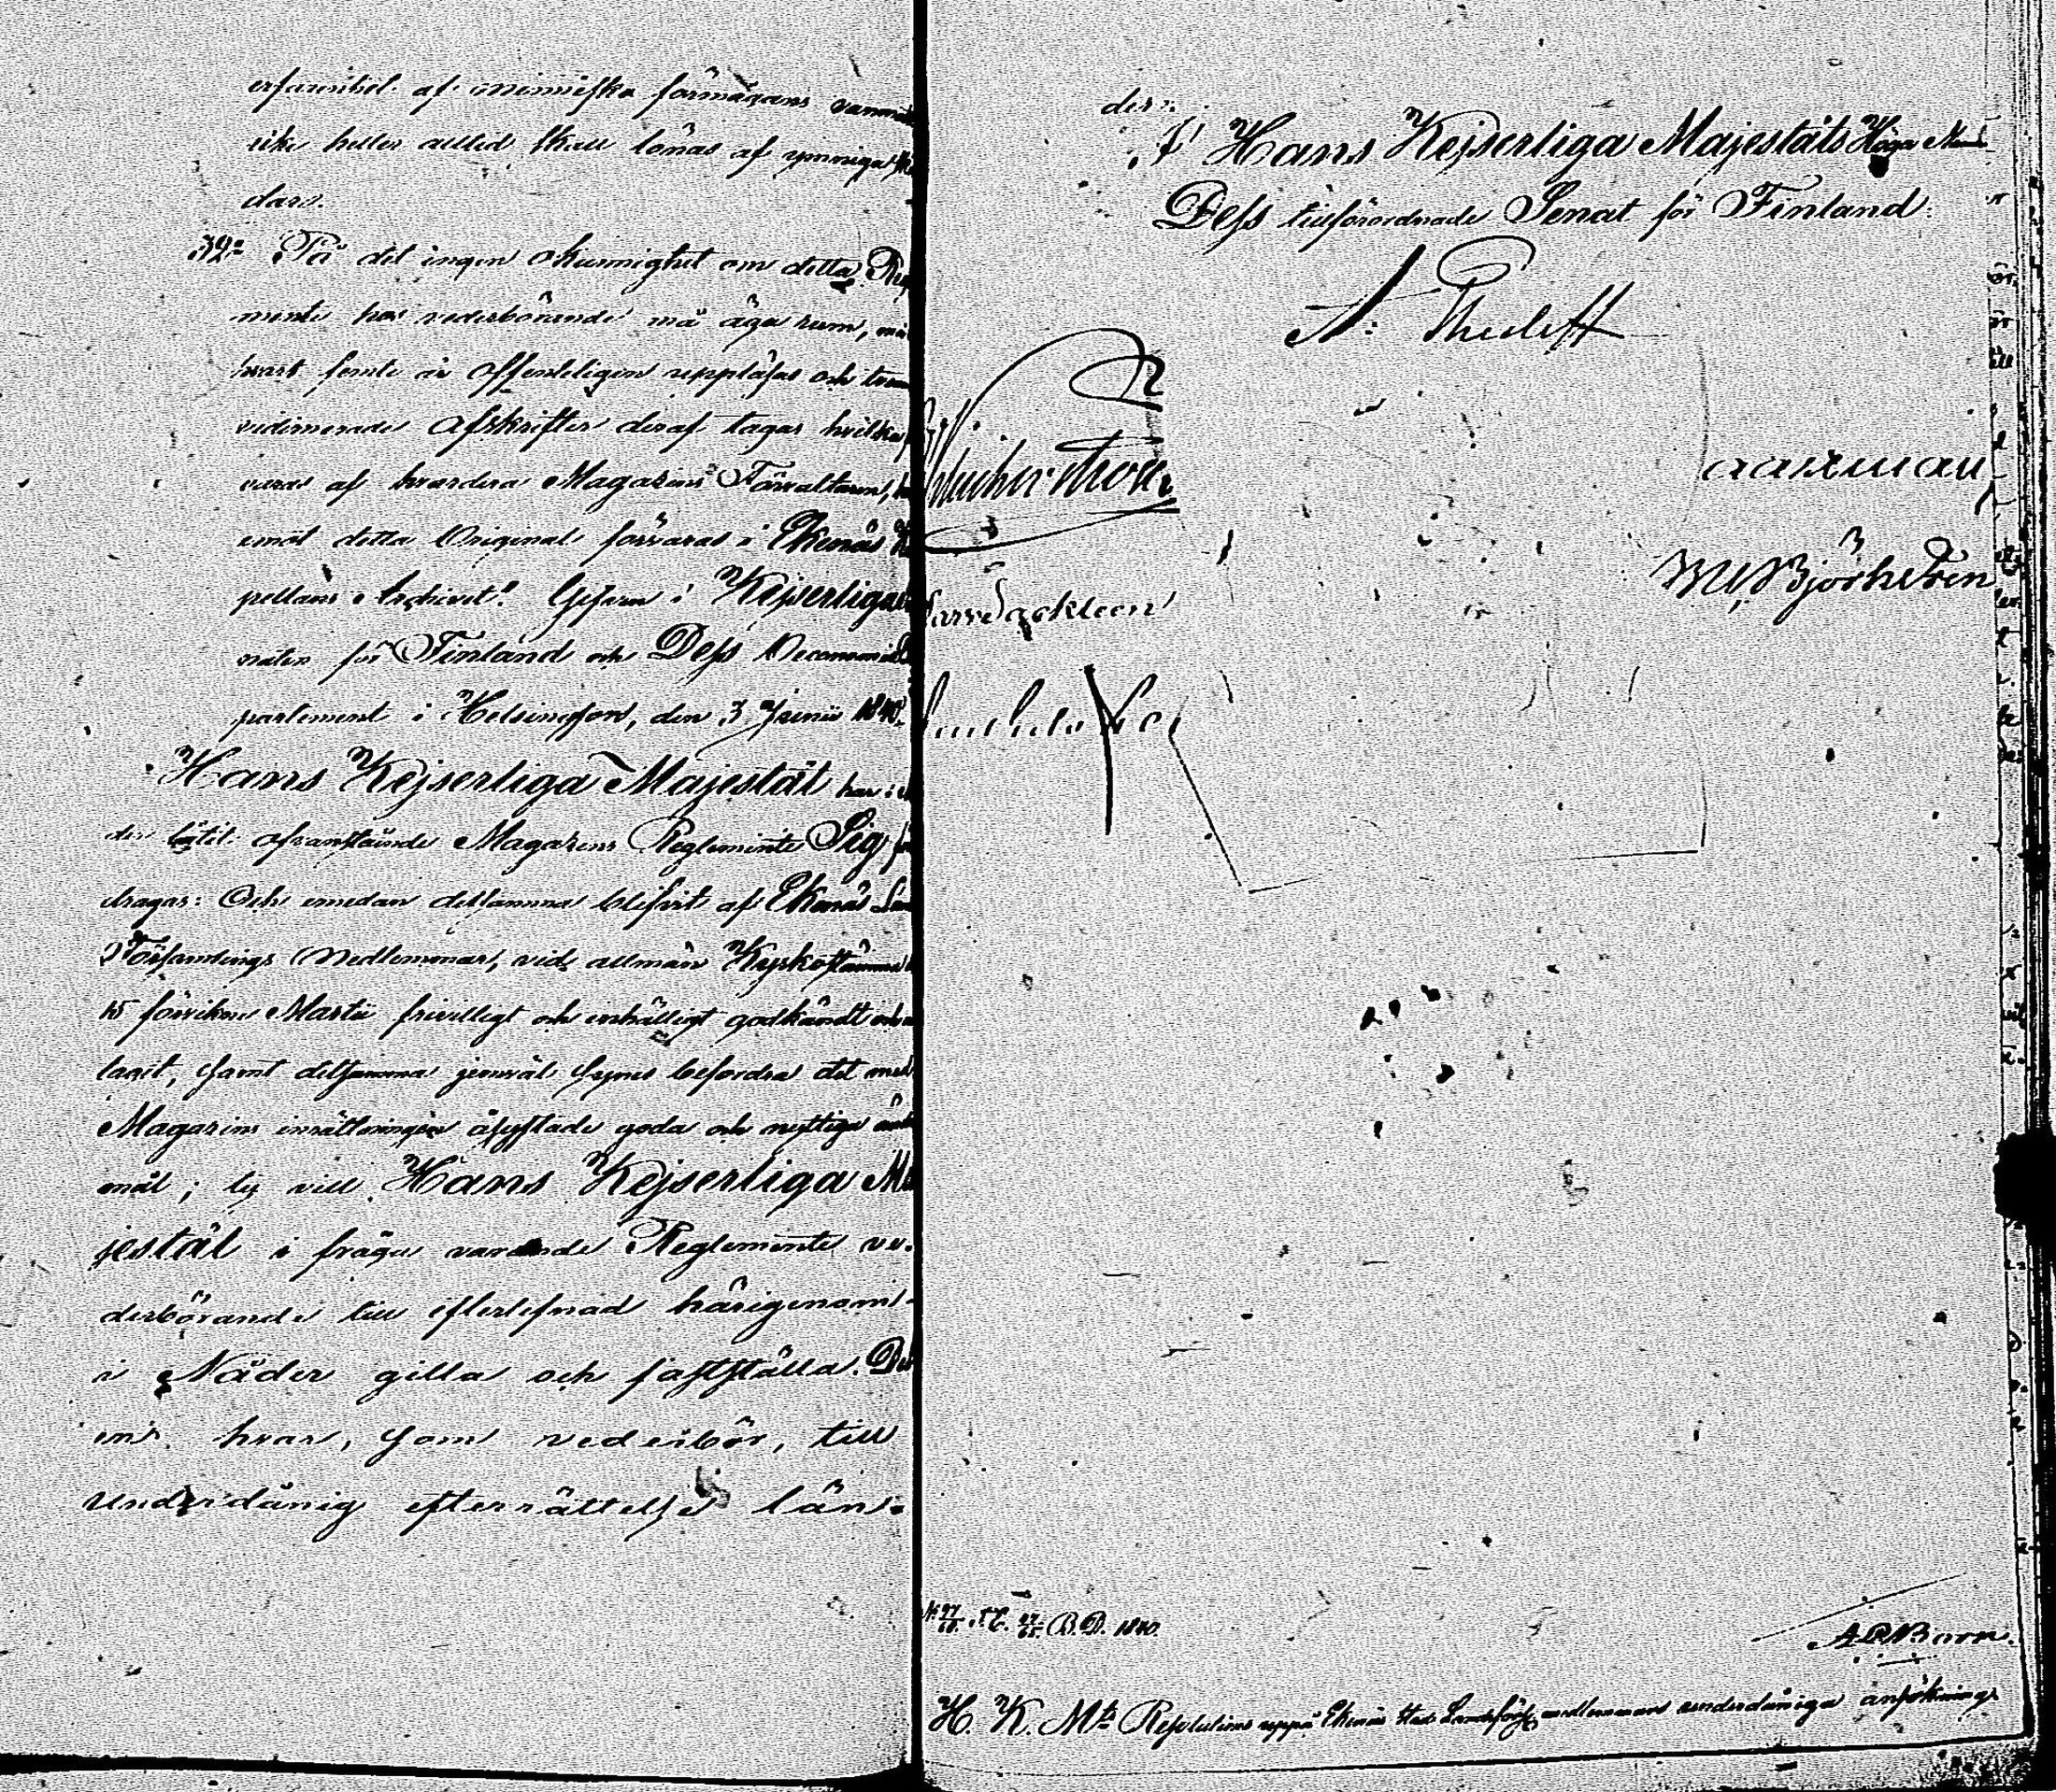 erfarenhet af menniska förmågans
icke heller alltid skall lönas af ymniga
dar.
39:o På det ingen okunnighet om detta Reg
mente hos vederbörande må äga rum,
hvart femte år offenteligen uppläsas och
vidimerade afskrifter deraf tagas hvilka
varas af hvardera Magazins Förvaltaren,
emot detta Original förvaras i Ekenäs
pellans Archivet. Gifven i Kejserliga
naten för Finland och Dess Oeconomie
partement i Helsingfors, den 3 Junii 1840.
Hans Kejserliga Majestät har i
der låtit ofvanstående Magazins Reglemente Sig
dragas: Och emedan detsamma blifvit af Ekenäs
Församlings Medlemmar, vid allmän Kyrkostämma
15 förvikne Martii frivilligt och enhälligt godkändt och
tagit, samt detsamma jemväl synes befordra det med
Magazins inrättningen åsyftade goda och nyttiga
mål; ty vill Hans Kejserliga Ma
jestät i fråga varande Reglemente ve-
derbörande till efterlefnad härigenom
i Nåder gilla och fastställa. Det
en hvar, som vederbör, till
underdånig efterrättelse län-
der.
I Hans Kejserliga Majestäts Höga
Dess tillförordnade Senat för Finland:
A:
W Björkstén
B.D. 1840.
A Born.
H. K. M:ts Resolution uppå Ekenäs Stads Landsförs. medlemmars underdåniga ansöknings